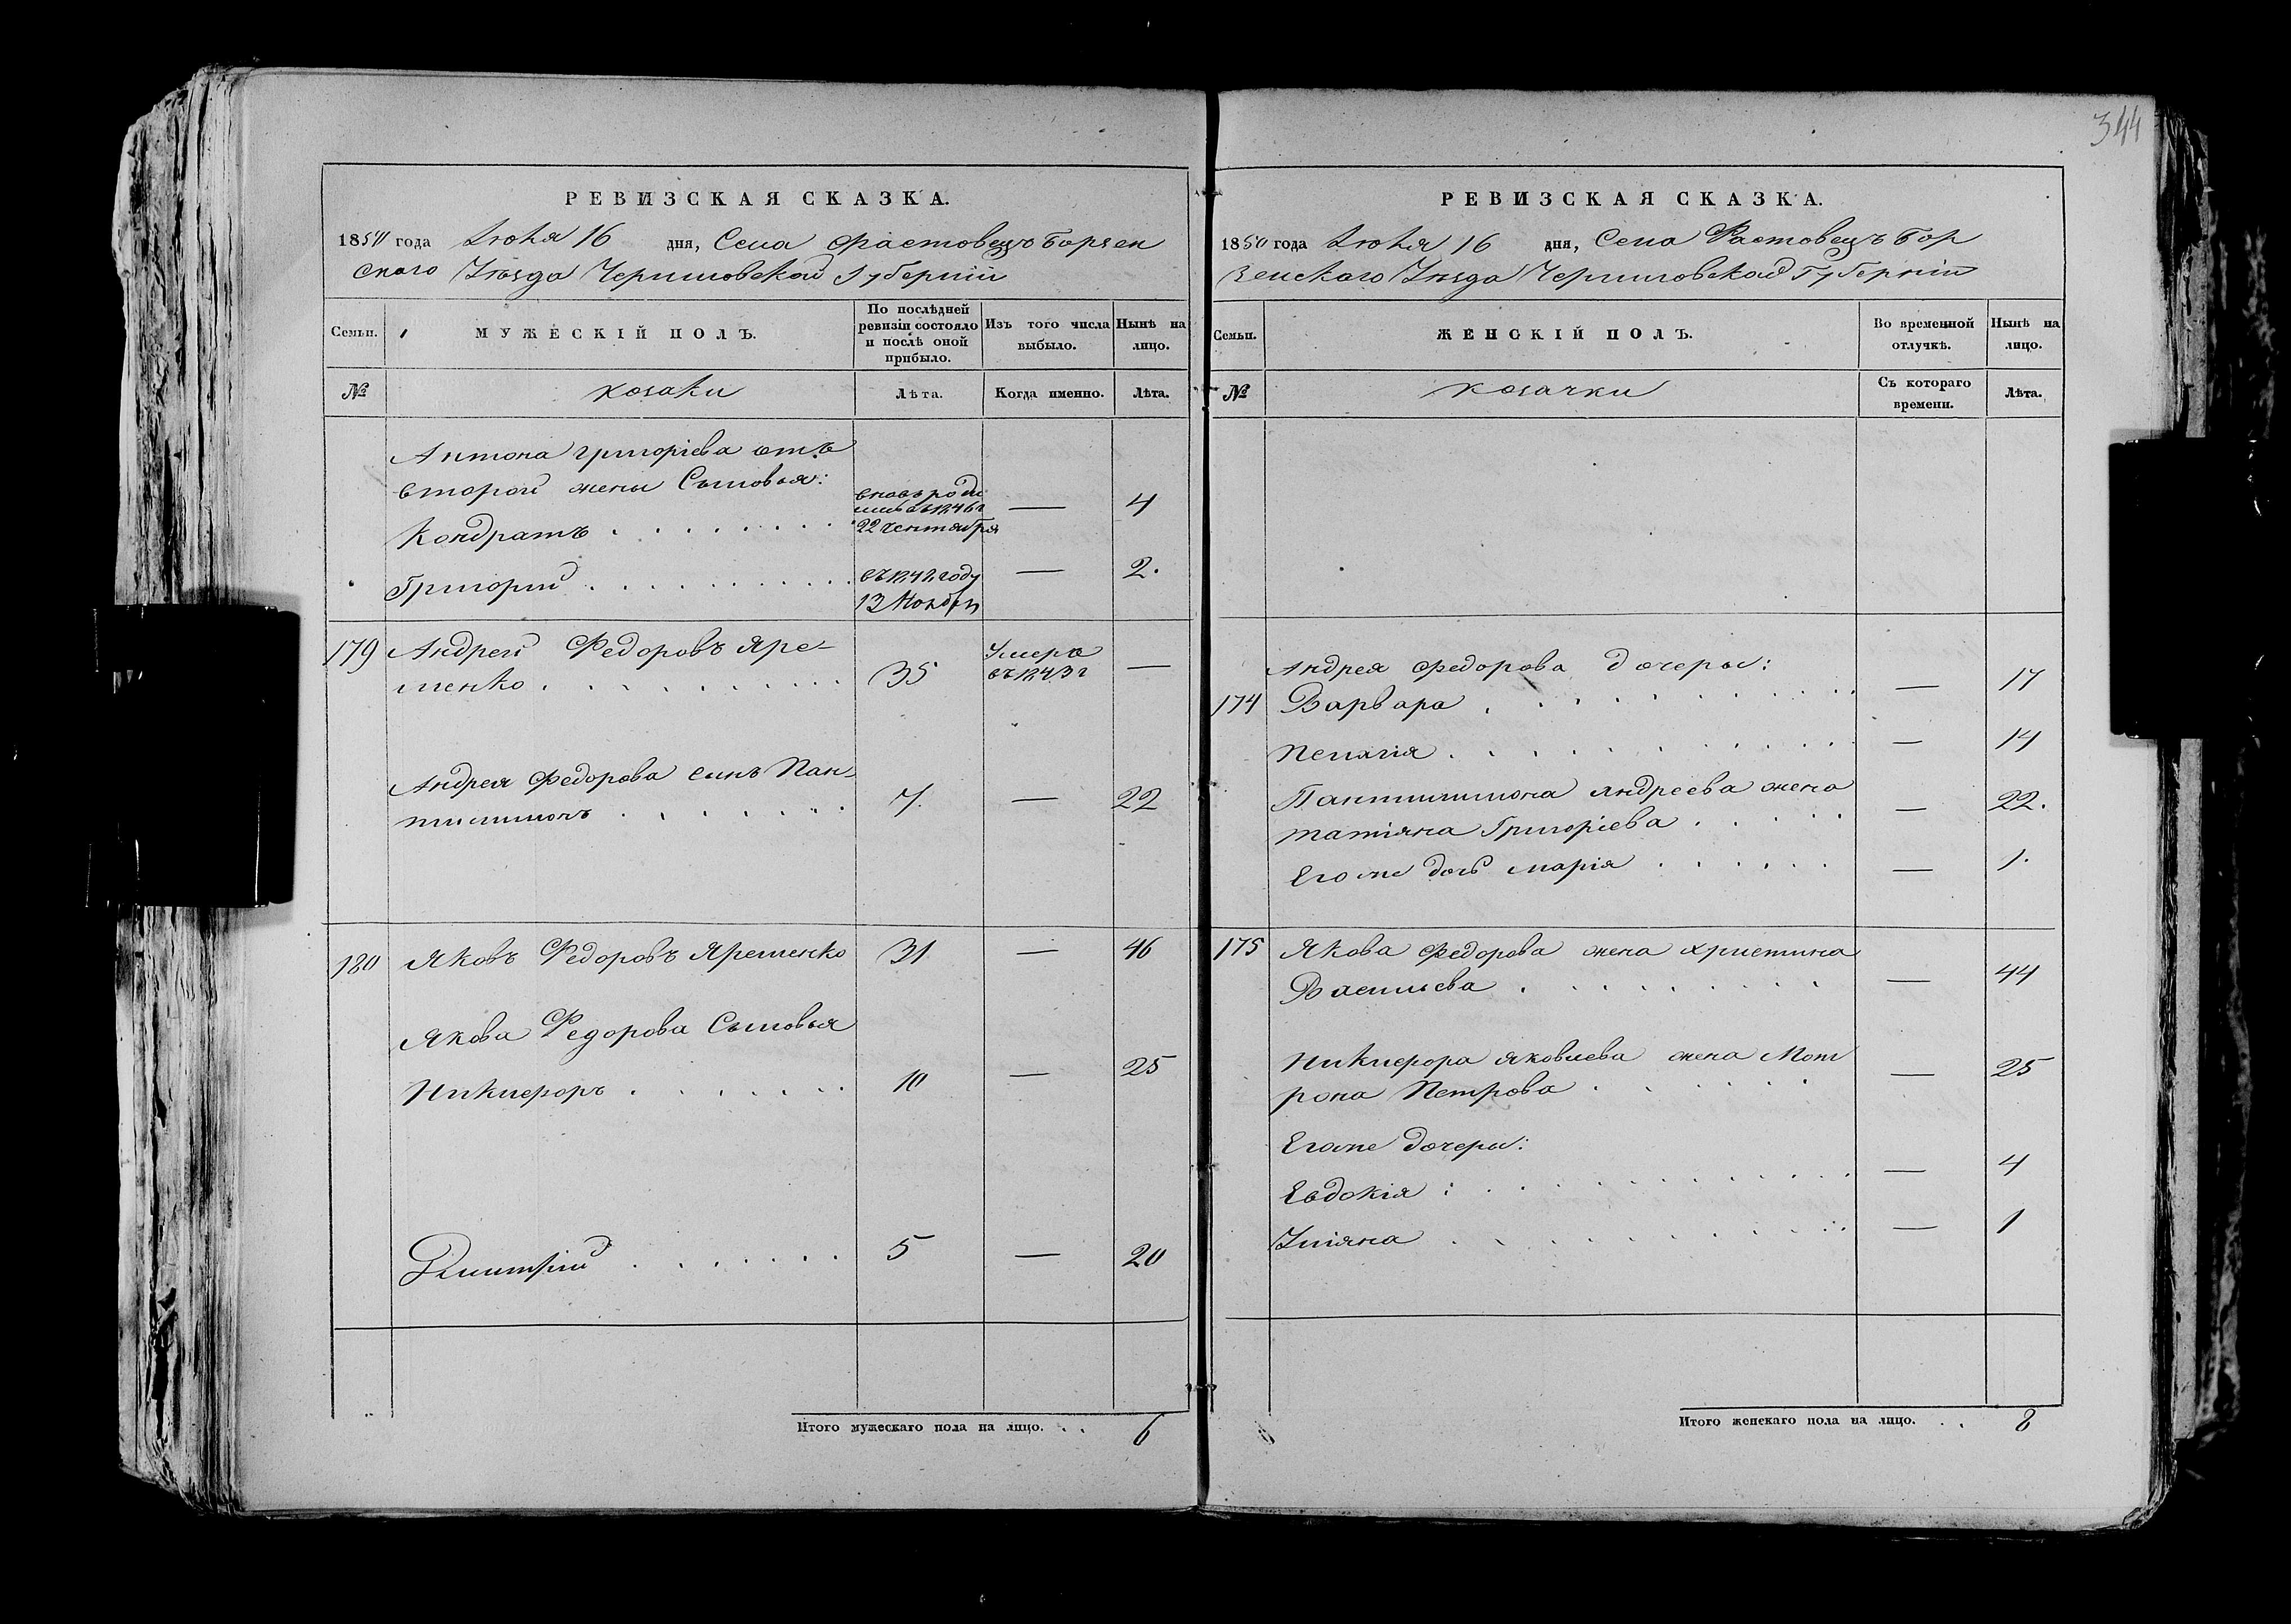 344
РЕВИЗСКАЯ СКАЗКА.
1850 года Июня 16 дня, Села Фастовецъ Борзен
скаго Уѣзда Черниговской Губерніи
Семьи. МУЖЕСКІЙ ПОЛЪ. По послѣдней ревизіи состояло и послѣ оной прибыло. Изъ того числа выбыло. Нынѣ на лицо.
№ Козаки Лѣта. Когда именно. Лѣта.
Антона Григоріева отъ
второй жены Сыновья:
Кондратъ 22 Сентября — 4
Григорий въ 1848 году 13 Ноября — 2.
179 Андрей Федоровъ Яре-
менко 35 Умеръ въ 1843 г —
Андрея Федорова сынъ Пан-
тилимонъ 7. — 22
180 Яковъ Федоровъ Яременко 31 — 46
Якова Федорова Сыновья
Никифоръ 10 — 25
Дмитрій 5 — 20
Итого мужескаго пола на лицо. 6
РЕВИЗСКАЯ СКАЗКА.
1850 года Июня 16 дня, Села Фастовецъ Бор
зенскаго Уѣзда Черниговской Губерніи
Семьи. ЖЕНСКІЙ ПОЛЪ. Во временной отлучкѣ. Нынѣ на лицо.
№ Козачки Съ котораго времени. Лѣта.
Андрея Федорова дочери:
174 Варвара — 17
Пелагія — 14
Пантилимона Андреева жена
Татіяна Григоріева — 22.
Его же дочь Марія — 1.
175 Якова Федорова жена Христина
Васильева — 44
Никифора Яковлева жена Мот
рона Петрова — 25
Егоже дочери:
Евдокія — 4
Уліяна — 1
Итого женскаго пола на лицо. 8